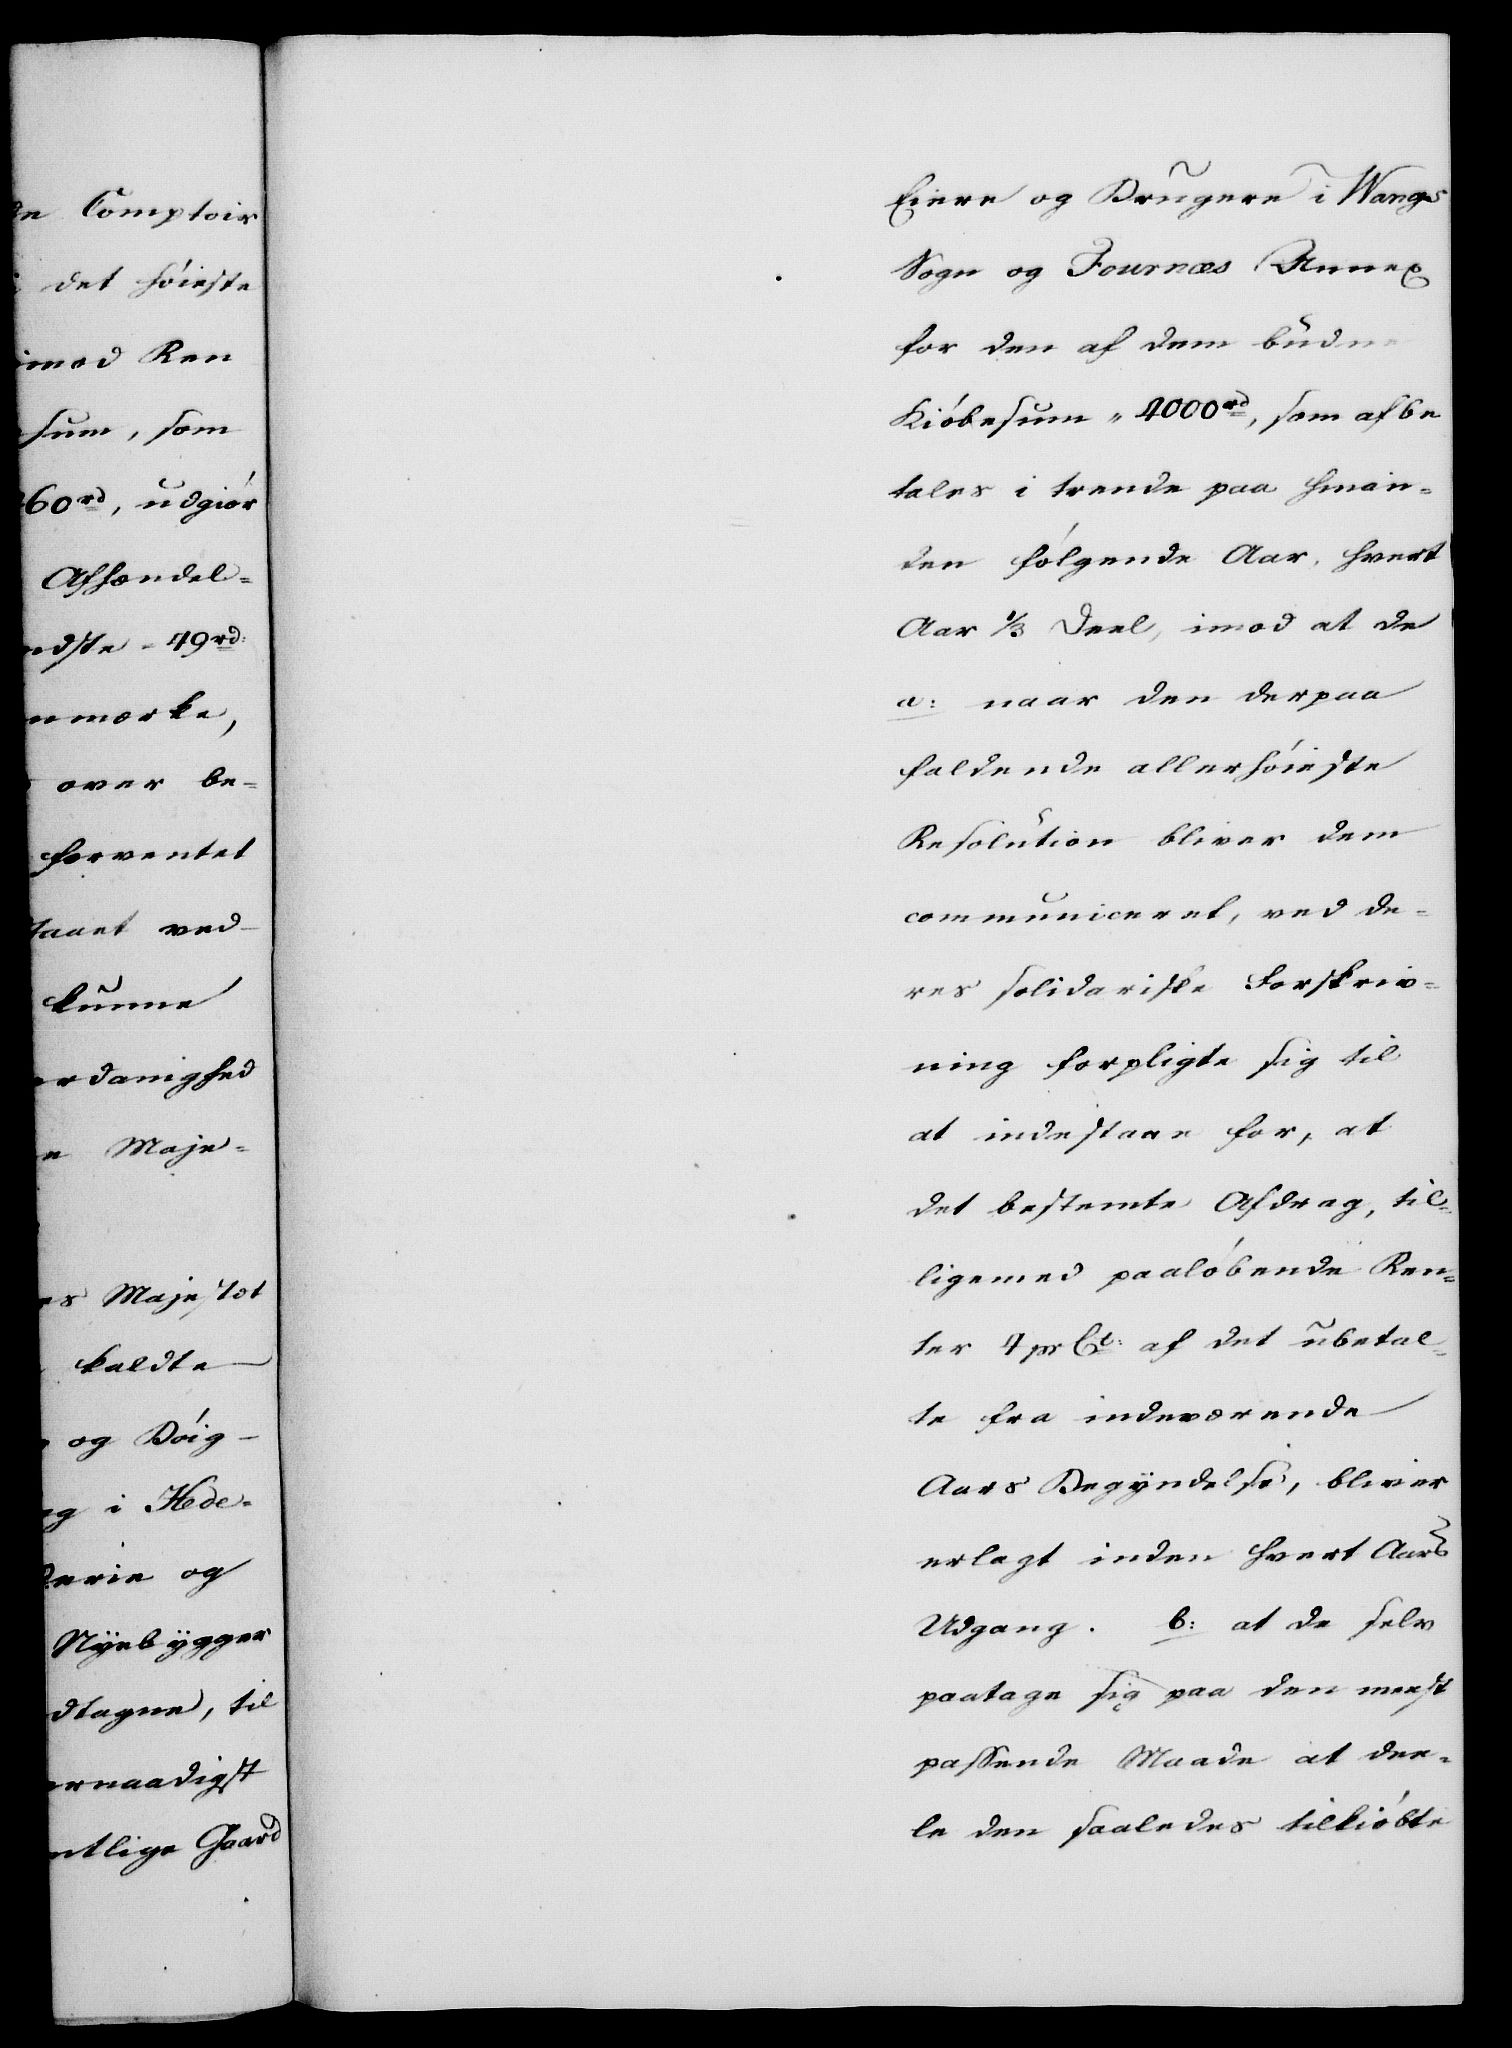 Comptoir
det høieste
imod Ren
sum, som
60rd, udgiør
Afhændel-
49rd
over be-
forventet
ved-
kunne
Maje-
Majestæt
kaldte
og Døig-
i Hede-
og
Nÿebÿgger
til
Gaard
Eiere og Brugere i Wangs
Sogn og Fournæs Annex
for den af dem budne
Kiøbesum " 4000rd, som afbe
tales i trende paa hinan-
den følgende Aar, hvert
Aar 1/3 Deel, imod at de
a: naar den derpaa
faldende allerhøieste
Resolution bliver dem
communiceret, ved de-
res solidariske Forskriv-
ning forpligte sig til
at indestaae for, at
det bestemte Afdrag, til-
ligemed paaløbende Ren-
ter 4 pr Ct: af det ubetal-
te fra indeværende
Aars Begÿndelse, bliver
erlagt inden hvert Aars
Udgang. b: at de selv
paatage sig paa den meest
passende Maade at dee-
le den saaledes tilkiøbte